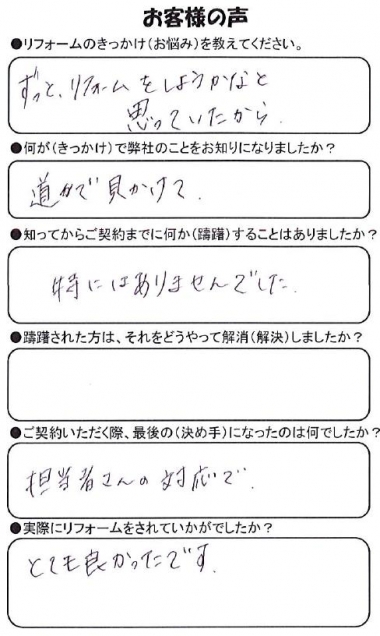 お客様の声
●リフォームのきっかけ(お悩み)を教えてください。
ずっと、リフォームをしようかなと
思っていたから.
●何が(きっかけ)で弊社のことをお知りになりましたか?
道がで見かけて.
●知ってからご契約までに何か(躊躇)することはありましたか?
特にはありませんでした.
●躊躇された方は、それをどうやって解消(解決)しましたか?
●ご契約いただく際、最後の(決め手)になったのは何でしたか?
担当者さんの対応で.
●実際にリフォームをされていかがでしたか?
とても良かったです.